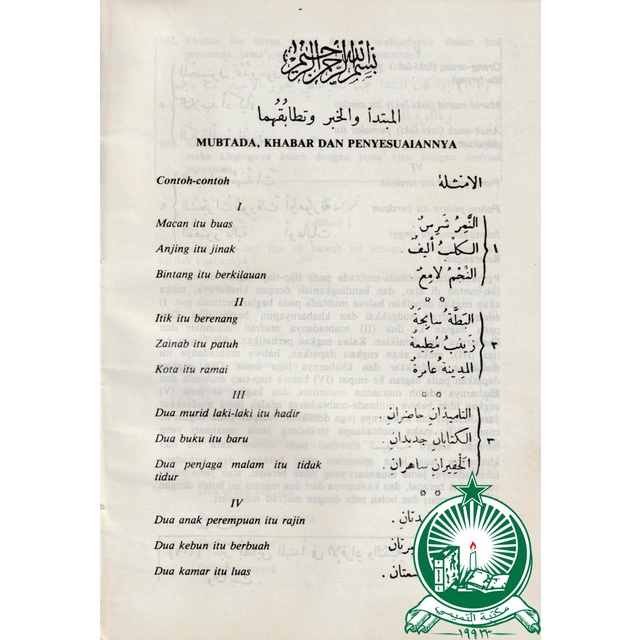 بسم الله الرحمن الرحيم
المبتدأ والخبر وتطابقُهما
MUBTADA, KHABAR DAN PENYESUAIANNYA
Contoh-contoh الامثلة
I
Macan itu buas النَّمِرُ شَرِسٌ
Anjing itu jinak الكلبُ أليفٌ . ١
Bintang itu berkilauan النَّجْمُ لامِعٌ
II
Itik itu berenang البَطَّةُ سابِحَةٌ
Zainab itu patuh زَيْنَبُ مُطِيعَةٌ ٢
Kota itu ramai المدِينةُ عامِرةٌ
III
Dua murid laki-laki itu hadir التلميذانِ حاضرانِ .
Dua buku itu baru الكتابانِ جديدانِ . ٣
Dua penjaga malam itu tidak الخفيرانِ ساهرانِ .
tidur
IV
Dua anak perempuan itu rajin
Dua kebun itu berbuah
Dua kamar itu luas
مكتبة التميمي
١٩٩٣